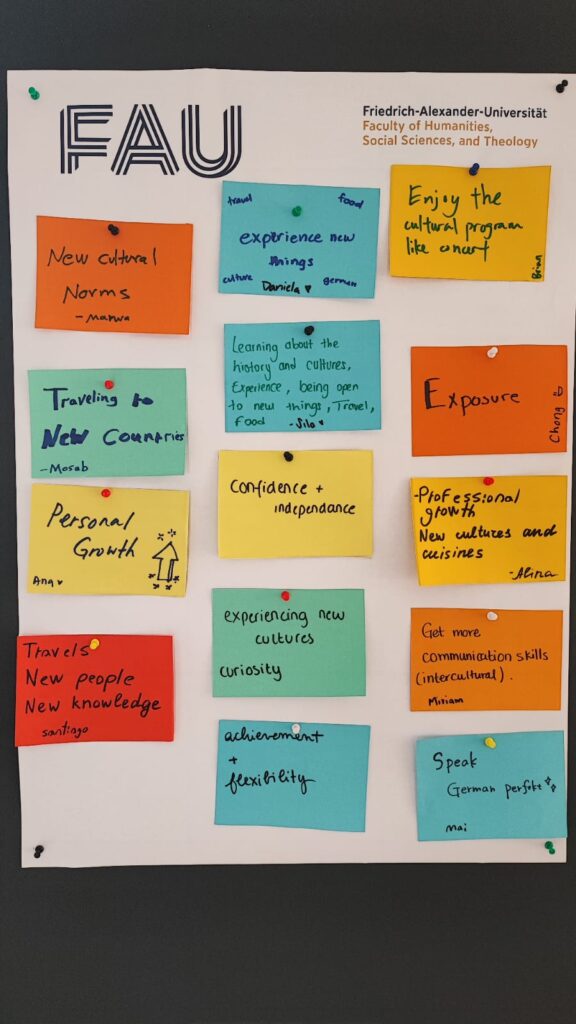 FAU
Friedrich-Alexander-Universität
Faculty of Humanities,
Social Sciences, and Theology
New cultural
Norms
- Marwa
Traveling to
New Countries
- Mosab
Personal
Growth
Ana
Travels
New people
New knowledge
santiago
travel food
experience new
things
culture german
Daniela
Learning about the
history and cultures,
Experience, being open
to new things, Travel,
Food
- Sila
Confidence +
independance
experiencing new
cultures
curiosity
achievement
+
flexibility
Enjoy the
cultural program
like concert
Brian
Exposure
Chong
- Professional
growth
New cultures and
cuisines
- Alina
Get more
communication skills
(intercultural).
Miriam
Speak
German perfekt
Mai